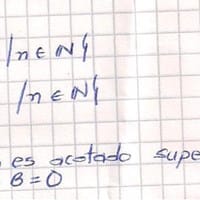 /n ∈ ℕ}
/n ∈ ℕ}
es acotado supe
B = 0